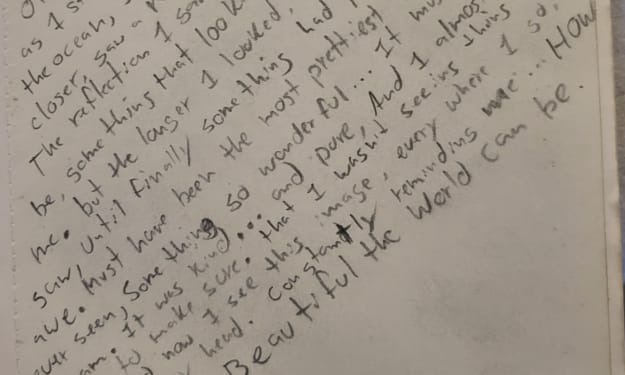 as I s
the ocean, saw a
closer, saw a r
The reflection I saw
be, something that look
me. but the longer I looked,
saw, until finally something had
awe. Must have been the most prettiest
ever seen, something so wonderful... It mus
am. It was kind... and pure, And I almos
to make sure, that I wasnt seeing thing
d now I see this image, every where I go,
head. Constantly reminding me... How
Beautiful the World can be.